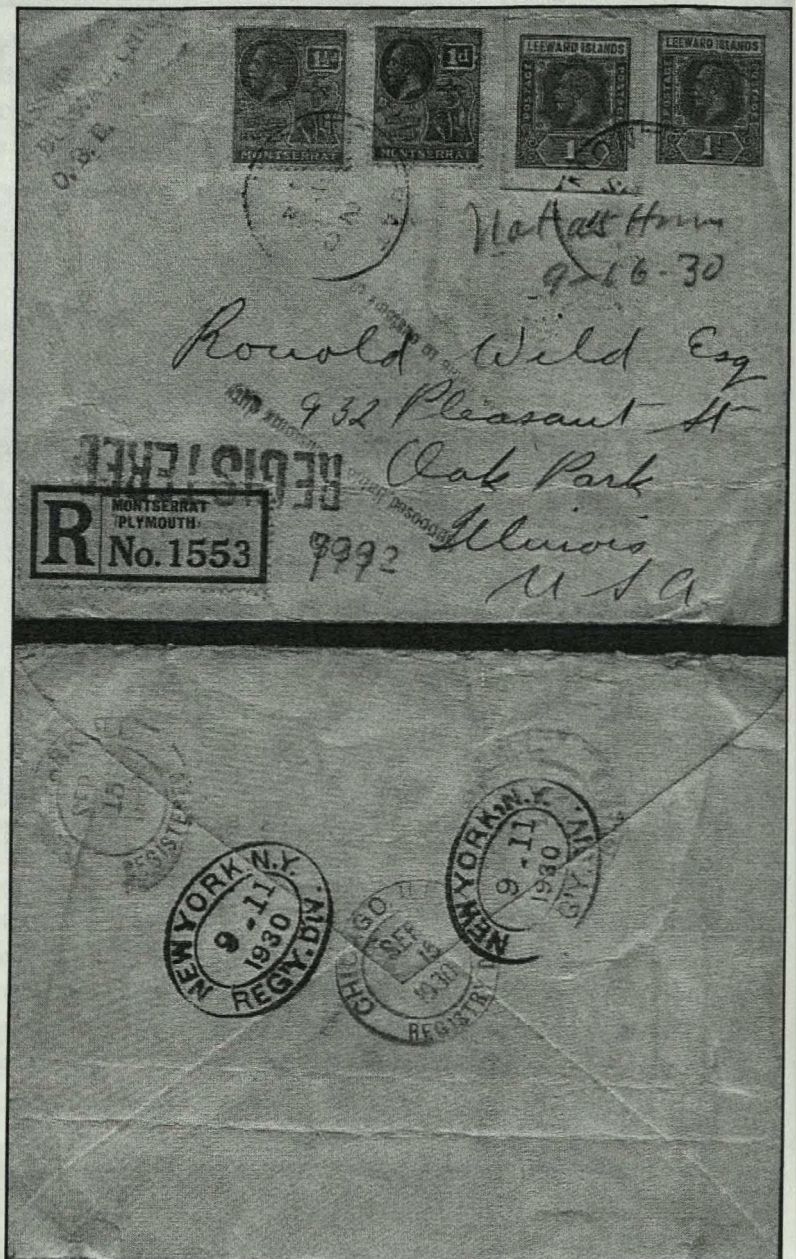 O.B.E.
1d 1d
MONTSERRAT MONTSERRAT
LEEWARD ISLANDS LEEWARD ISLANDS
POSTAGE POSTAGE
1d 1d
Not at Home
9-16-30
Ronald Wild Esq
932 Pleasant St
Oak Park
Illinois
U S A
REGISTERED
R MONTSERRAT
PLYMOUTH
No. 1553
9992
SEP
15
REGISTE
NEW YORK, N.Y.
9-11
1930
REG'Y. DIV.
CHICAGO
SEP
15
1930
REGISTRY
NEW YORK, N.Y.
9-11
1930
G'Y. DIV.